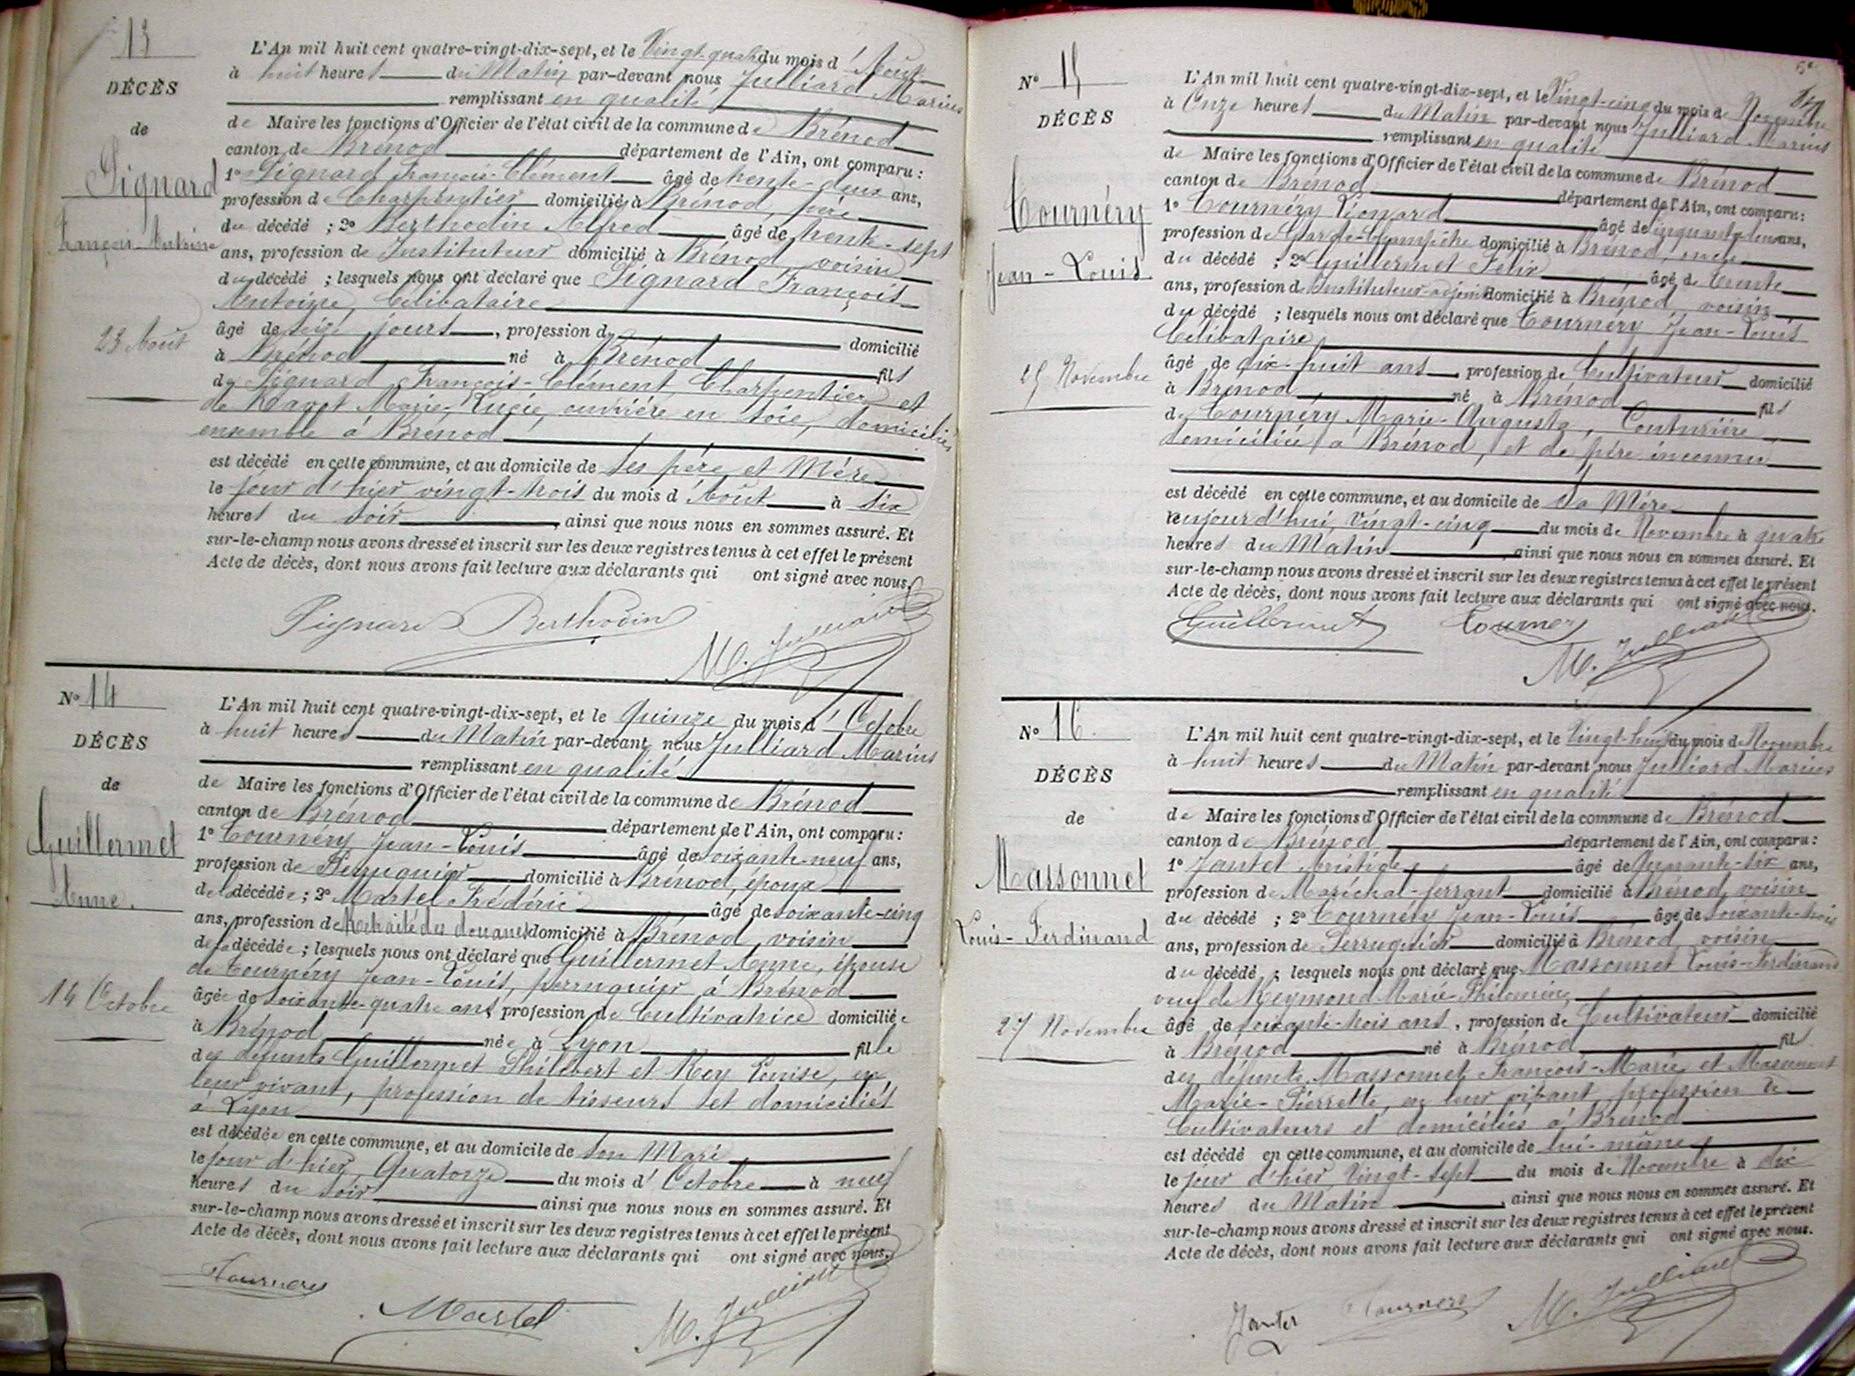 13
DÉCÈS
de
Pignard
François-Antoine
23 Août
L'An mil huit cent quatre-vingt-dix-sept, et le Vingt quatre du mois d'Août
à huit heures du Matin par-devant nous Julliard Marius
remplissant en qualité
de Maire les fonctions d'Officier de l'état civil de la commune de Brénod
canton de Brénod département de l'Ain, ont comparu :
1º Pignard François-Clément âgé de trente-deux ans,
profession de Charpentier domicilié à Brénod, père
du décédé ; 2º Berthodin Alfred âgé de trente-sept
ans, profession de Instituteur domicilié à Brénod voisin
du décédé ; lesquels nous ont déclaré que Pignard François
Antoine, Célibataire
âgé de seize jours, profession d domicilié
à Brénod né à Brénod fils
de Pignard François-Clément, Charpentier et
de Marie-Lucie, ouvrière en soie, domiciliés
ensemble à Brénod
est décédé en cette commune, et au domicile de ses père et Mère
le jour d'hier vingt-trois du mois d'Août à six
heures du soir, ainsi que nous nous en sommes assuré. Et
sur-le-champ nous avons dressé et inscrit sur les deux registres tenus à cet effet le présent
Acte de décès, dont nous avons fait lecture aux déclarants qui ont signé avec nous.
Pignard Berthodin
M. Julliard
Nº 14
DÉCÈS
de
Guillermet
Anne.
14 Octobre
L'An mil huit cent quatre-vingt-dix-sept, et le Quinze du mois d'Octobre
à huit heures du Matin par-devant nous Julliard Marius
remplissant en qualité
de Maire les fonctions d'Officier de l'état civil de la commune de Brénod
canton de Brénod département de l'Ain, ont comparu :
1º Tournéry Jean-Louis âgé de soixante-neuf ans,
profession de Perruquier domicilié à Brénod, époux
de la décédée ; 2º Martel Frédéric âgé de soixante-cinq
ans, profession de Retraité des douanes domicilié à Brénod voisin
de la décédée ; lesquels nous ont déclaré que Guillermet Anne, épouse
de Tournéry Jean-Louis, perruquier à Brénod
âgée de soixante-quatre ans, profession de Cultivatrice domiciliée
à Brénod née à Lyon fille
des défunts Guillermet Philibert et Rey Louise, en
leur vivant, profession de tisseurs et domiciliés
à Lyon
est décédée en cette commune, et au domicile de son Mari
le jour d'hier, Quatorze du mois d'Octobre à neuf
heures du soir ainsi que nous nous en sommes assuré. Et
sur-le-champ nous avons dressé et inscrit sur les deux registres tenus à cet effet le présent
Acte de décès, dont nous avons fait lecture aux déclarants qui ont signé avec nous.
Tournery
Martel
M. Julliard
Nº 15
DÉCÈS
de
Tournéry
Jean-Louis
25 Novembre
L'An mil huit cent quatre-vingt-dix-sept, et le Vingt-cinq du mois de Novembre
à Onze heures du Matin par-devant nous Julliard Marius
remplissant en qualité
de Maire les fonctions d'Officier de l'état civil de la commune de Brénod
canton de Brénod département de l'Ain, ont comparu :
1º Tournéry Léonard âgé de cinquante-deux ans,
profession de Garde-champêtre domicilié à Brénod, oncle
du décédé ; 2º Guillermet Félix âgé de trente
ans, profession d'Instituteur-adjoint domicilié à Brénod, voisin
du décédé ; lesquels nous ont déclaré que Tournéry Jean-Louis
Célibataire
âgé de dix-huit ans, profession de Cultivateur domicilié
à Brénod né à Brénod fils
de Tournéry Marie-Augusta, Couturière
domiciliée à Brénod, et de père inconnu
est décédé en cette commune, et au domicile de sa Mère
aujourd'hui, vingt-cinq du mois de Novembre à quatre
heures du Matin, ainsi que nous nous en sommes assuré. Et
sur-le-champ nous avons dressé et inscrit sur les deux registres tenus à cet effet le présent
Acte de décès, dont nous avons fait lecture aux déclarants qui ont signé avec nous.
Guillermet Tournery
M. Julliard
Nº 16.
DÉCÈS
de
Massonnet
Louis-Ferdinand
27 Novembre
L'An mil huit cent quatre-vingt-dix-sept, et le Vingt-huit du mois de Novembre
à huit heures du Matin par-devant nous Julliard Marius
remplissant en qualité
de Maire les fonctions d'Officier de l'état civil de la commune de Brénod
canton de Brénod département de l'Ain, ont comparu :
1º Jantet Aristide âgé de Quarante-six ans,
profession de Maréchal-ferrant domicilié à Brénod, voisin
du décédé ; 2º Tournéry Jean-Louis âgé de soixante-trois
ans, profession de Perruquier domicilié à Brénod voisin
du décédé ; lesquels nous ont déclaré que Massonnet Louis-Ferdinand
veuf de Reymond Marie-Philomène
âgé de soixante-trois ans, profession de Cultivateur domicilié
à Brénod né à Brénod fils
des défunts Massonnet François-Marie et Massonnet
Marie-Pierrette, en leur vivant, profession de
Cultivateurs et domiciliés à Brénod
est décédé en cette commune, et au domicile de lui-même
le jour d'hier, Vingt-sept du mois de Novembre à dix
heures du Matin, ainsi que nous nous en sommes assuré. Et
sur-le-champ nous avons dressé et inscrit sur les deux registres tenus à cet effet le présent
Acte de décès, dont nous avons fait lecture aux déclarants qui ont signé avec nous.
Jantet Tournery M. Julliard